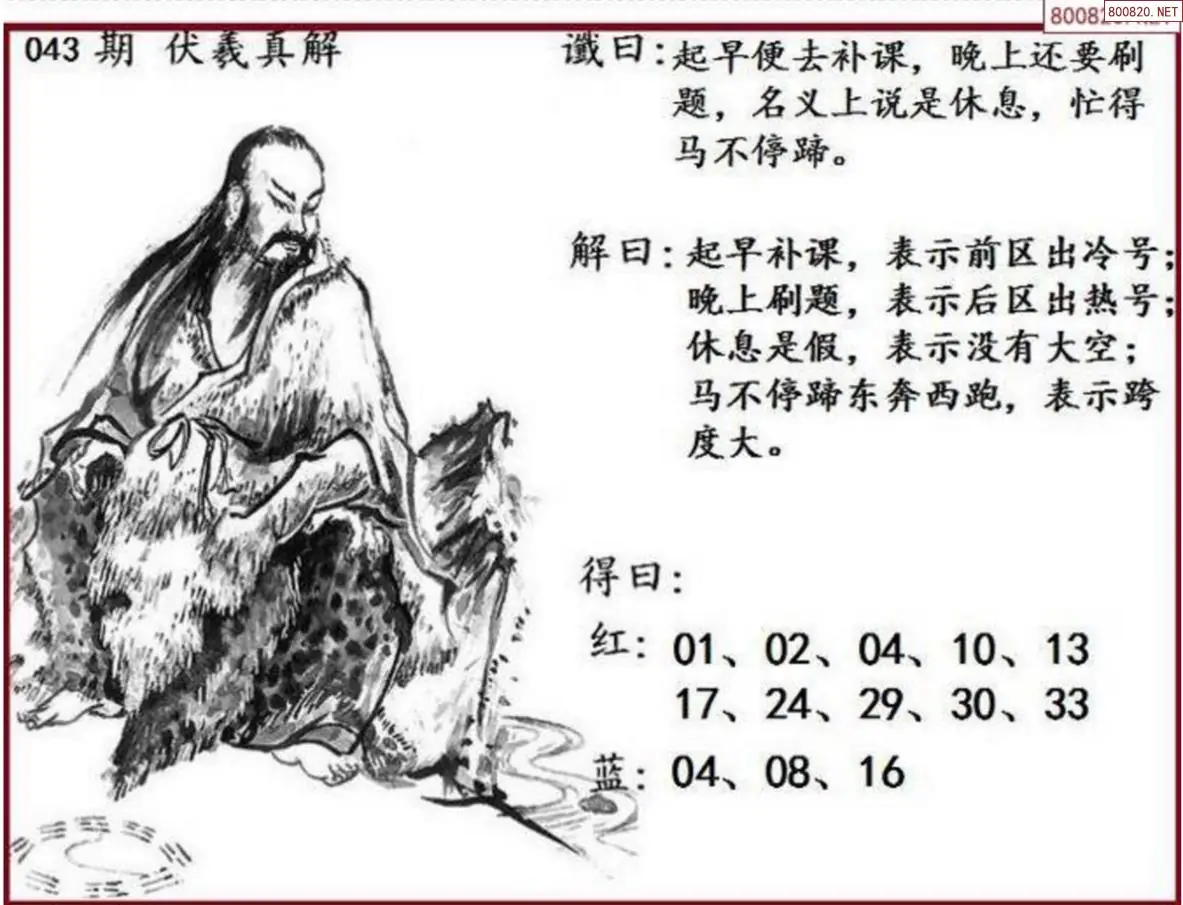 800820.NET
043期 伏羲真解
谶曰:起早便去补课，晚上还要刷
题，名义上说是休息，忙得
马不停蹄。
解曰:起早补课，表示前区出冷号;
晚上刷题，表示后区出热号;
休息是假，表示没有大空;
马不停蹄东奔西跑，表示跨
度大。
得曰:
红: 01、02、04、10、13
17、24、29、30、33
蓝: 04、08、16